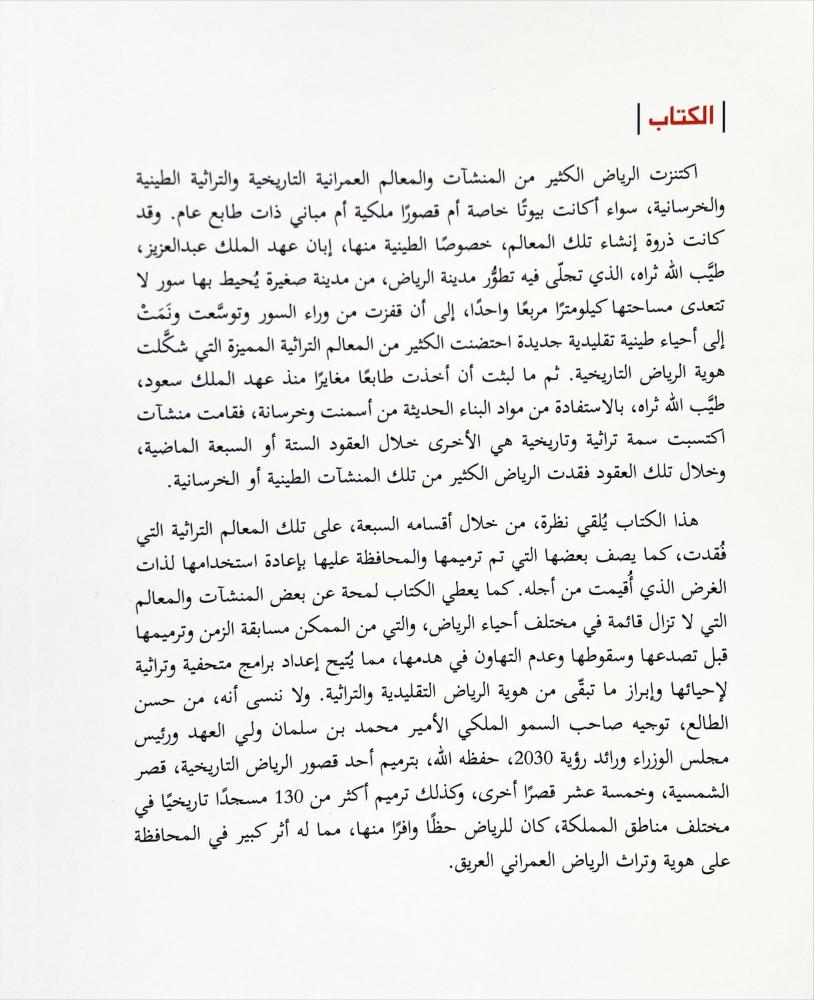 | الكتاب |
اكتنزت الرياض الكثير من المنشآت والمعالم العمرانية التاريخية والتراثية الطينية
والخرسانية، سواء أكانت بيوتًا خاصة أم قصورًا ملكية أم مباني ذات طابع عام. وقد
كانت ذروة إنشاء تلك المعالم، خصوصًا الطينية منها، إبان عهد الملك عبدالعزيز،
طيَّب الله ثراه، الذي تجلّى فيه تطوُّر مدينة الرياض، من مدينة صغيرة يُحيط بها سور لا
تتعدى مساحتها كيلومترًا مربعًا واحدًا، إلى أن قفزت من وراء السور وتوسَّعت ونَمَتْ
إلى أحياء طينية تقليدية جديدة احتضنت الكثير من المعالم التراثية المميزة التي شكَّلت
هوية الرياض التاريخية. ثم ما لبثت أن أخذت طابعًا مغايرًا منذ عهد الملك سعود،
طيَّب الله ثراه، بالاستفادة من مواد البناء الحديثة من أسمنت وخرسانة، فقامت منشآت
اكتسبت سمة تراثية وتاريخية هي الأخرى خلال العقود الستة أو السبعة الماضية،
وخلال تلك العقود فقدت الرياض الكثير من تلك المنشآت الطينية أو الخرسانية.
هذا الكتاب يُلقي نظرة، من خلال أقسامه السبعة، على تلك المعالم التراثية التي
فُقدت، كما يصف بعضها التي تم ترميمها والمحافظة عليها بإعادة استخدامها لذات
الغرض الذي أُقيمت من أجله. كما يعطي الكتاب لمحة عن بعض المنشآت والمعالم
التي لا تزال قائمة في مختلف أحياء الرياض، والتي من الممكن مسابقة الزمن وترميمها
قبل تصدعها وسقوطها وعدم التهاون في هدمها، مما يُتيح إعداد برامج متحفية وتراثية
لإحيائها وإبراز ما تبقّى من هوية الرياض التقليدية والتراثية. ولا ننسى أنه، من حسن
الطالع، توجيه صاحب السمو الملكي الأمير محمد بن سلمان ولي العهد ورئيس
مجلس الوزراء ورائد رؤية 2030، حفظه الله، بترميم أحد قصور الرياض التاريخية، قصر
الشمسية، وخمسة عشر قصرًا أخرى، وكذلك ترميم أكثر من 130 مسجدًا تاريخيًا في
مختلف مناطق المملكة، كان للرياض حظًا وافرًا منها، مما له أثر كبير في المحافظة
على هوية وتراث الرياض العمراني العريق.